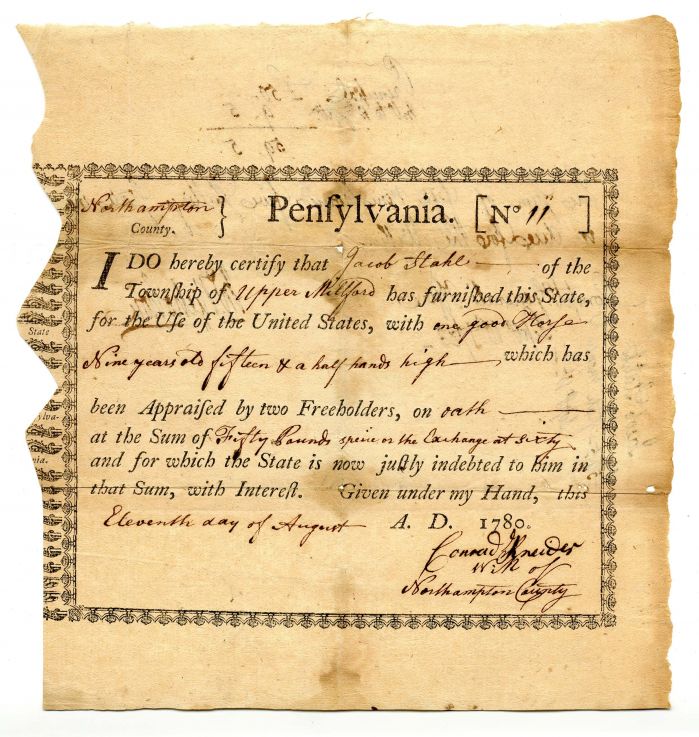 Northampton
County. }
Penſylvania.
[No 11 ]
I DO hereby certify that Jacob Stahl of the
Townſhip of Upper Millford has furniſhed this State,
for the Uſe of the United States, with one good Horſe
Nine years old fifteen & a half hands high which has
been Appraiſed by two Freeholders, on oath
at the Sum of Fifty Pounds specie or the Exchange at Sixty
and for which the State is now juſtly indebted to him in
that Sum, with Intereſt. Given under my Hand, this
Eleventh day of August A. D. 1780.
Conrad Kneider
W.M of
Northampton County
State